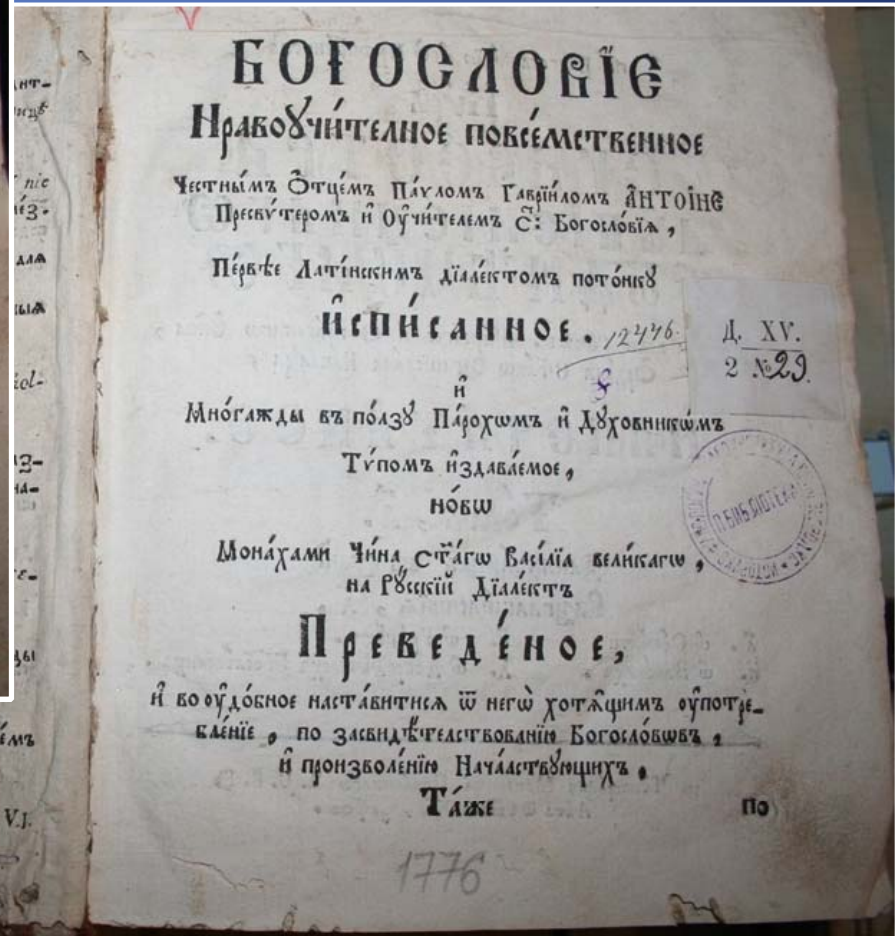 БОГОСЛОВЇЄ
Нравоꙋчи́телное повсе́мственное
Честны́мъ Ѻ҆тце́мъ Па́ѵломъ Гаврїи́ломъ А҆НТОІ́НЄ
Пресвѵ́теромъ и҆ Оу҆чи́телемъ С҃: Богосло́вїѧ ,
Пе́рвѣе Лати́нскимъ дїале́ктомъ пото́нкꙋ
и҆спи́санное . 12446.
Д. XV.
2 № 29.
и҆
Мно́гажды въ по́лзꙋ Па́рохѡмъ и҆ Дꙋхо́вникѡмъ
Тѵ́помъ и҆здава́емое ,
но́вѡ
Мона́хами Чи́на ст҃а́гѡ Васі́лїа вели́кагѡ ,
на Рꙋ́сскїй Дїале́ктъ
Преведе́ное ,
и҆ во оу҆до́бное наста́витисѧ ѿ негѡ̀ хотѧ́щимъ оу҆потре-
бле́нїе , по засвидѣ́телствованїю Богосло́вѡвъ ,
и҆ произволе́нїю Нача́лствꙋющихъ ,
Та́же по
1776
БИБЛІОТЕКА
нїе
для
ZOL-
е́мъ
V.I.